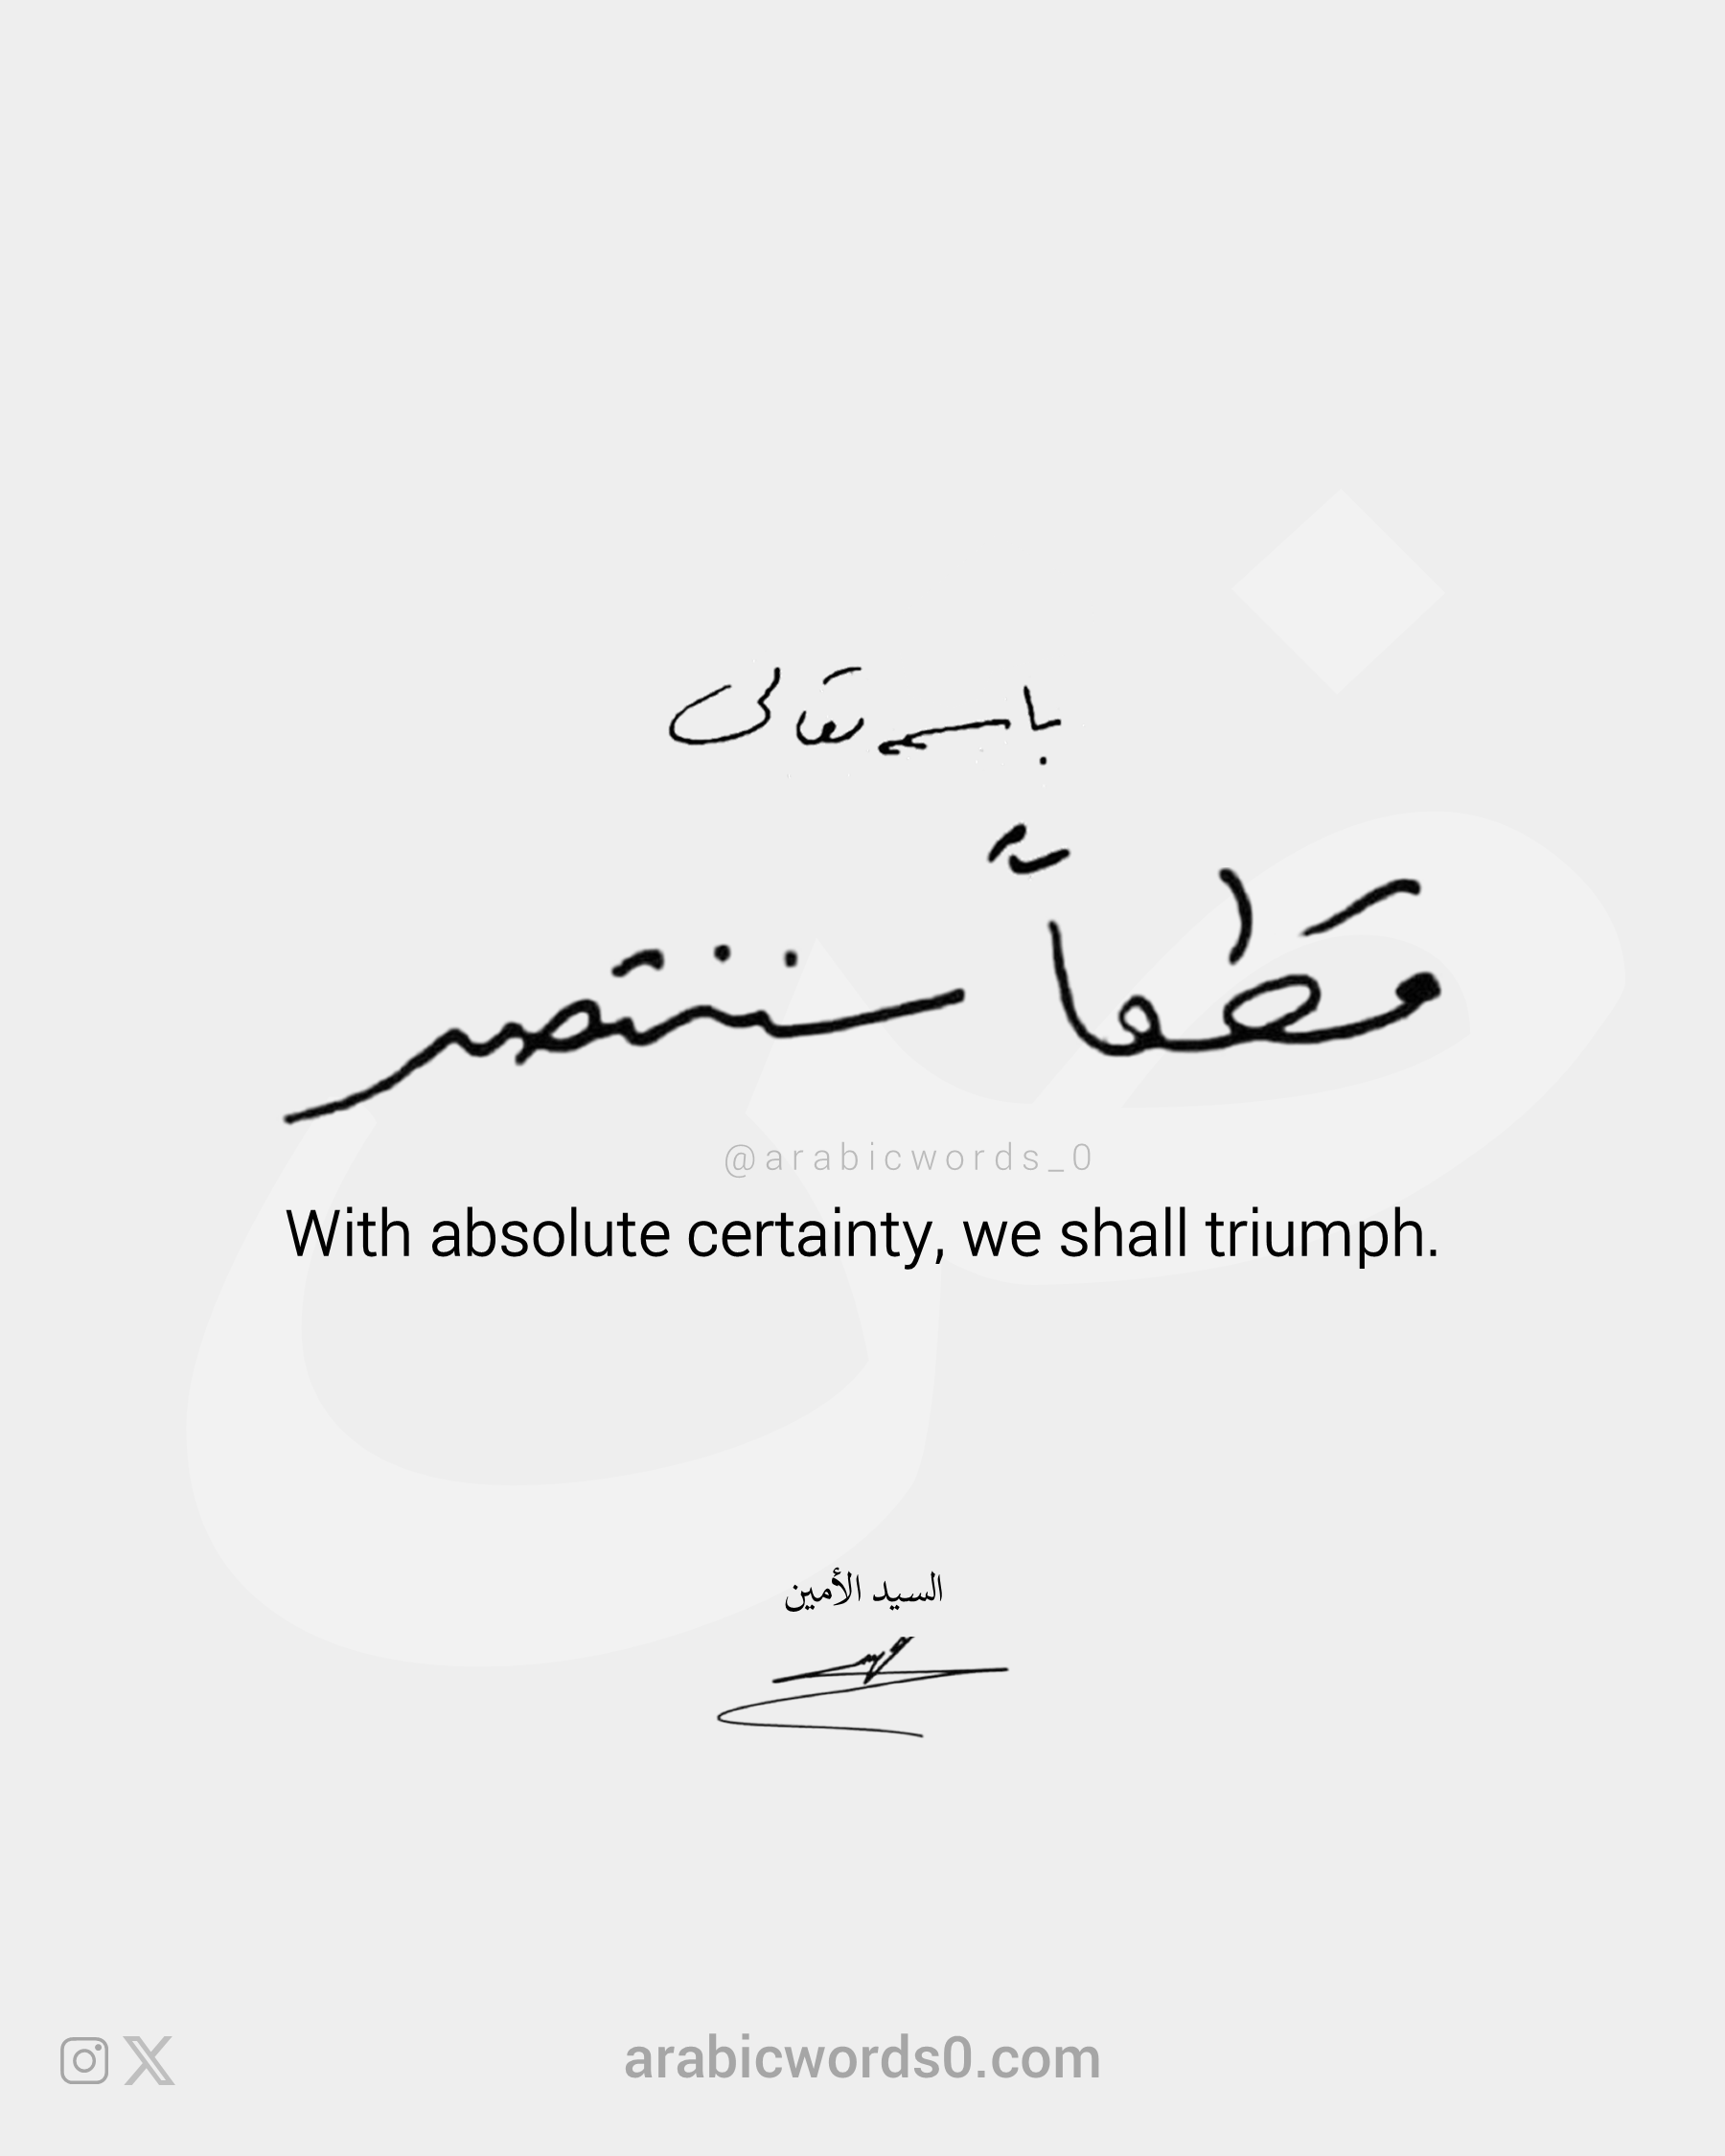 باسمه تعالى
قطعاً سننتصر
@arabicwords_0
With absolute certainty, we shall triumph.
السيد الأمين
arabicwords0.com